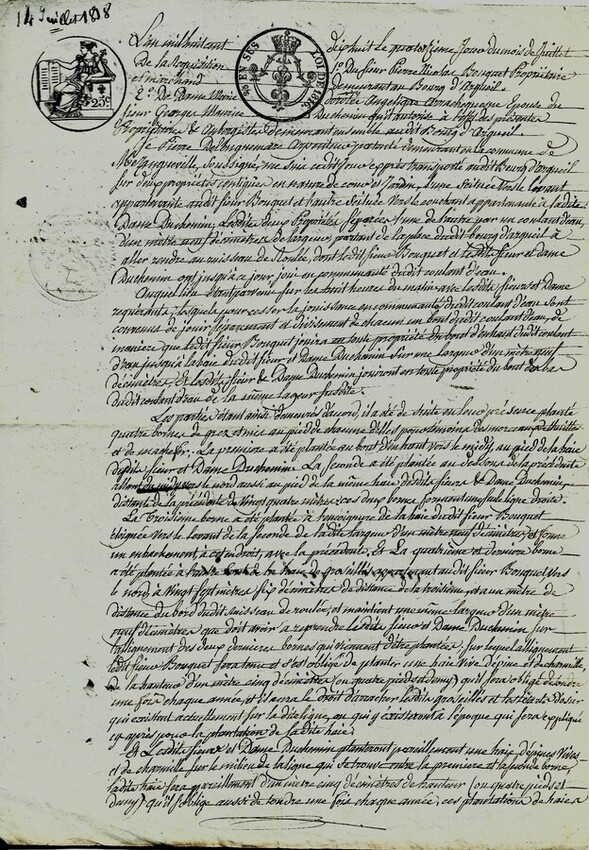 14 Juillet 1818
25c
EN SES LOI DE 1816
L'an mil huit cent dix huit le quatorzième Jour du mois de Juillet
De la Réquisition 1.° Du sieur Pierre Nicolas Bouquet Propriétaire
et marchand Demeurant au Bourg d'Argueil
2.° De Dame Marie Dorotée Angelique Epouse du
sieur George Maurice Duchemin
Propriétaire & Aubergiste demeurant ensemble audit Bourg d'Argueil
Je Pierre Arpenteur patenté demeurant en la commune de
Soussigné, me suis cedit Jour exprès transporté audit Bourg d'argueil
sur deux propriétés contiguës en nature de cour et Jardin, l'une Située Vers le levant
appartenante audit sieur Bouquet et l'autre Située Vers le couchant appartenante à ladite
Dame Duchemin, Lesdites deux Propriétés séparées l'une de l'autre par un coulant d'eau,
d'un mètre neuf décimètres de largeur, partant de la place dudit bourg d'argueil à
aller rendre au ruisseau de dont ledit sieur Bouquet et lesdits sieur et dame
Duchemin ont jusqu'à ce jour joui en communauté dudit coulant d'eau.
Auquel lieu étant parvenu sur les huit heures du matin avec lesdits sieurs et Dame
requérants, lesquels pour cesser la jouissance en communauté dudit coulant d'eau Sont
convenus de jouir séparément et divisément de chacun un bout dudit coulant d'eau, de
manière que ledit sieur Bouquet jouira en toute propriété du bord d'enhaut dudit coulant
d'eau jusqu'à la haie dudit sieur et Dame Duchemin Sur une largeur d'un mètre neuf
décimètres, Et lesdits sieur & Dame Duchemin jouiront en toute propriété du bout d'en bas
dudit coulant d'eau de la même largeur susdite.
Les parties étant ainsi demeurées d'accord, il a été de suite en leur présence planté
quatre bornes de grez et mis au pied de chacune d'elles pour témoins des morceaux de thuilles
et de machefer. La première a été plantée au bout d'enhaut vers le midy, au pied de la haie
desdits sieur et Dame Duchemin. La seconde a été plantée au dessous de la précédente
allant le nord aussi au pied de la même haie desdits sieurs & Dame Duchemin,
distante de la précédente de Vingt quatre mètres; ces deux bornes formant une seule ligne droite.
La Troisième borne a été plantée à l'encoignure de la haie dudit sieur Bouquet
éloignée vers le levant de la seconde de la dite largeur d'un mètre neuf décimètres, et forme
un embarkment à cet endroit, avec la précédente, Et La quatrième et dernière borne
a été plantée à de groseilles appartenant audit sieur Bouquet vers
le nord, à Vingt sept mètres six décimètres de distance de la troisième, et à un mètre de
distance du bord dudit ruisseau de et maintient une même largeur d'un mètre
neuf décimètres que doit avoir à reprendre lesdits sieur et Dame Duchemin, sur
l'alignement des deux dernières bornes qui viennent d'être plantées, sur lequel alignement
ledit sieur Bouquet sera tenu et s'est obligé de planter une haie vive d'épine et de charmille,
de la hauteur d'un mètre cinq décimètres (ou quatre pieds et demy) qu'il sera obligé de tondre
une fois chaque année, et il aura le droit d'arracher lesdits groseilles
qui existent actuellement sur la dite ligne, ou qui y existeront à l'époque qui sera expliqué
cy après pour la plantation de la dite haie.
Et Lesdits sieur et Dame Duchemin planteront pareillement une haie d'épines Vives
et de charmille sur le milieu de la ligne qui se trouve entre la première et la seconde borne,
ladite haie sera pareillement d'un mètre cinq décimètres de hauteur (ou quatre pieds et
demy) qu'il s'oblige aussi de tondre une fois chaque année, ces plantations de haies